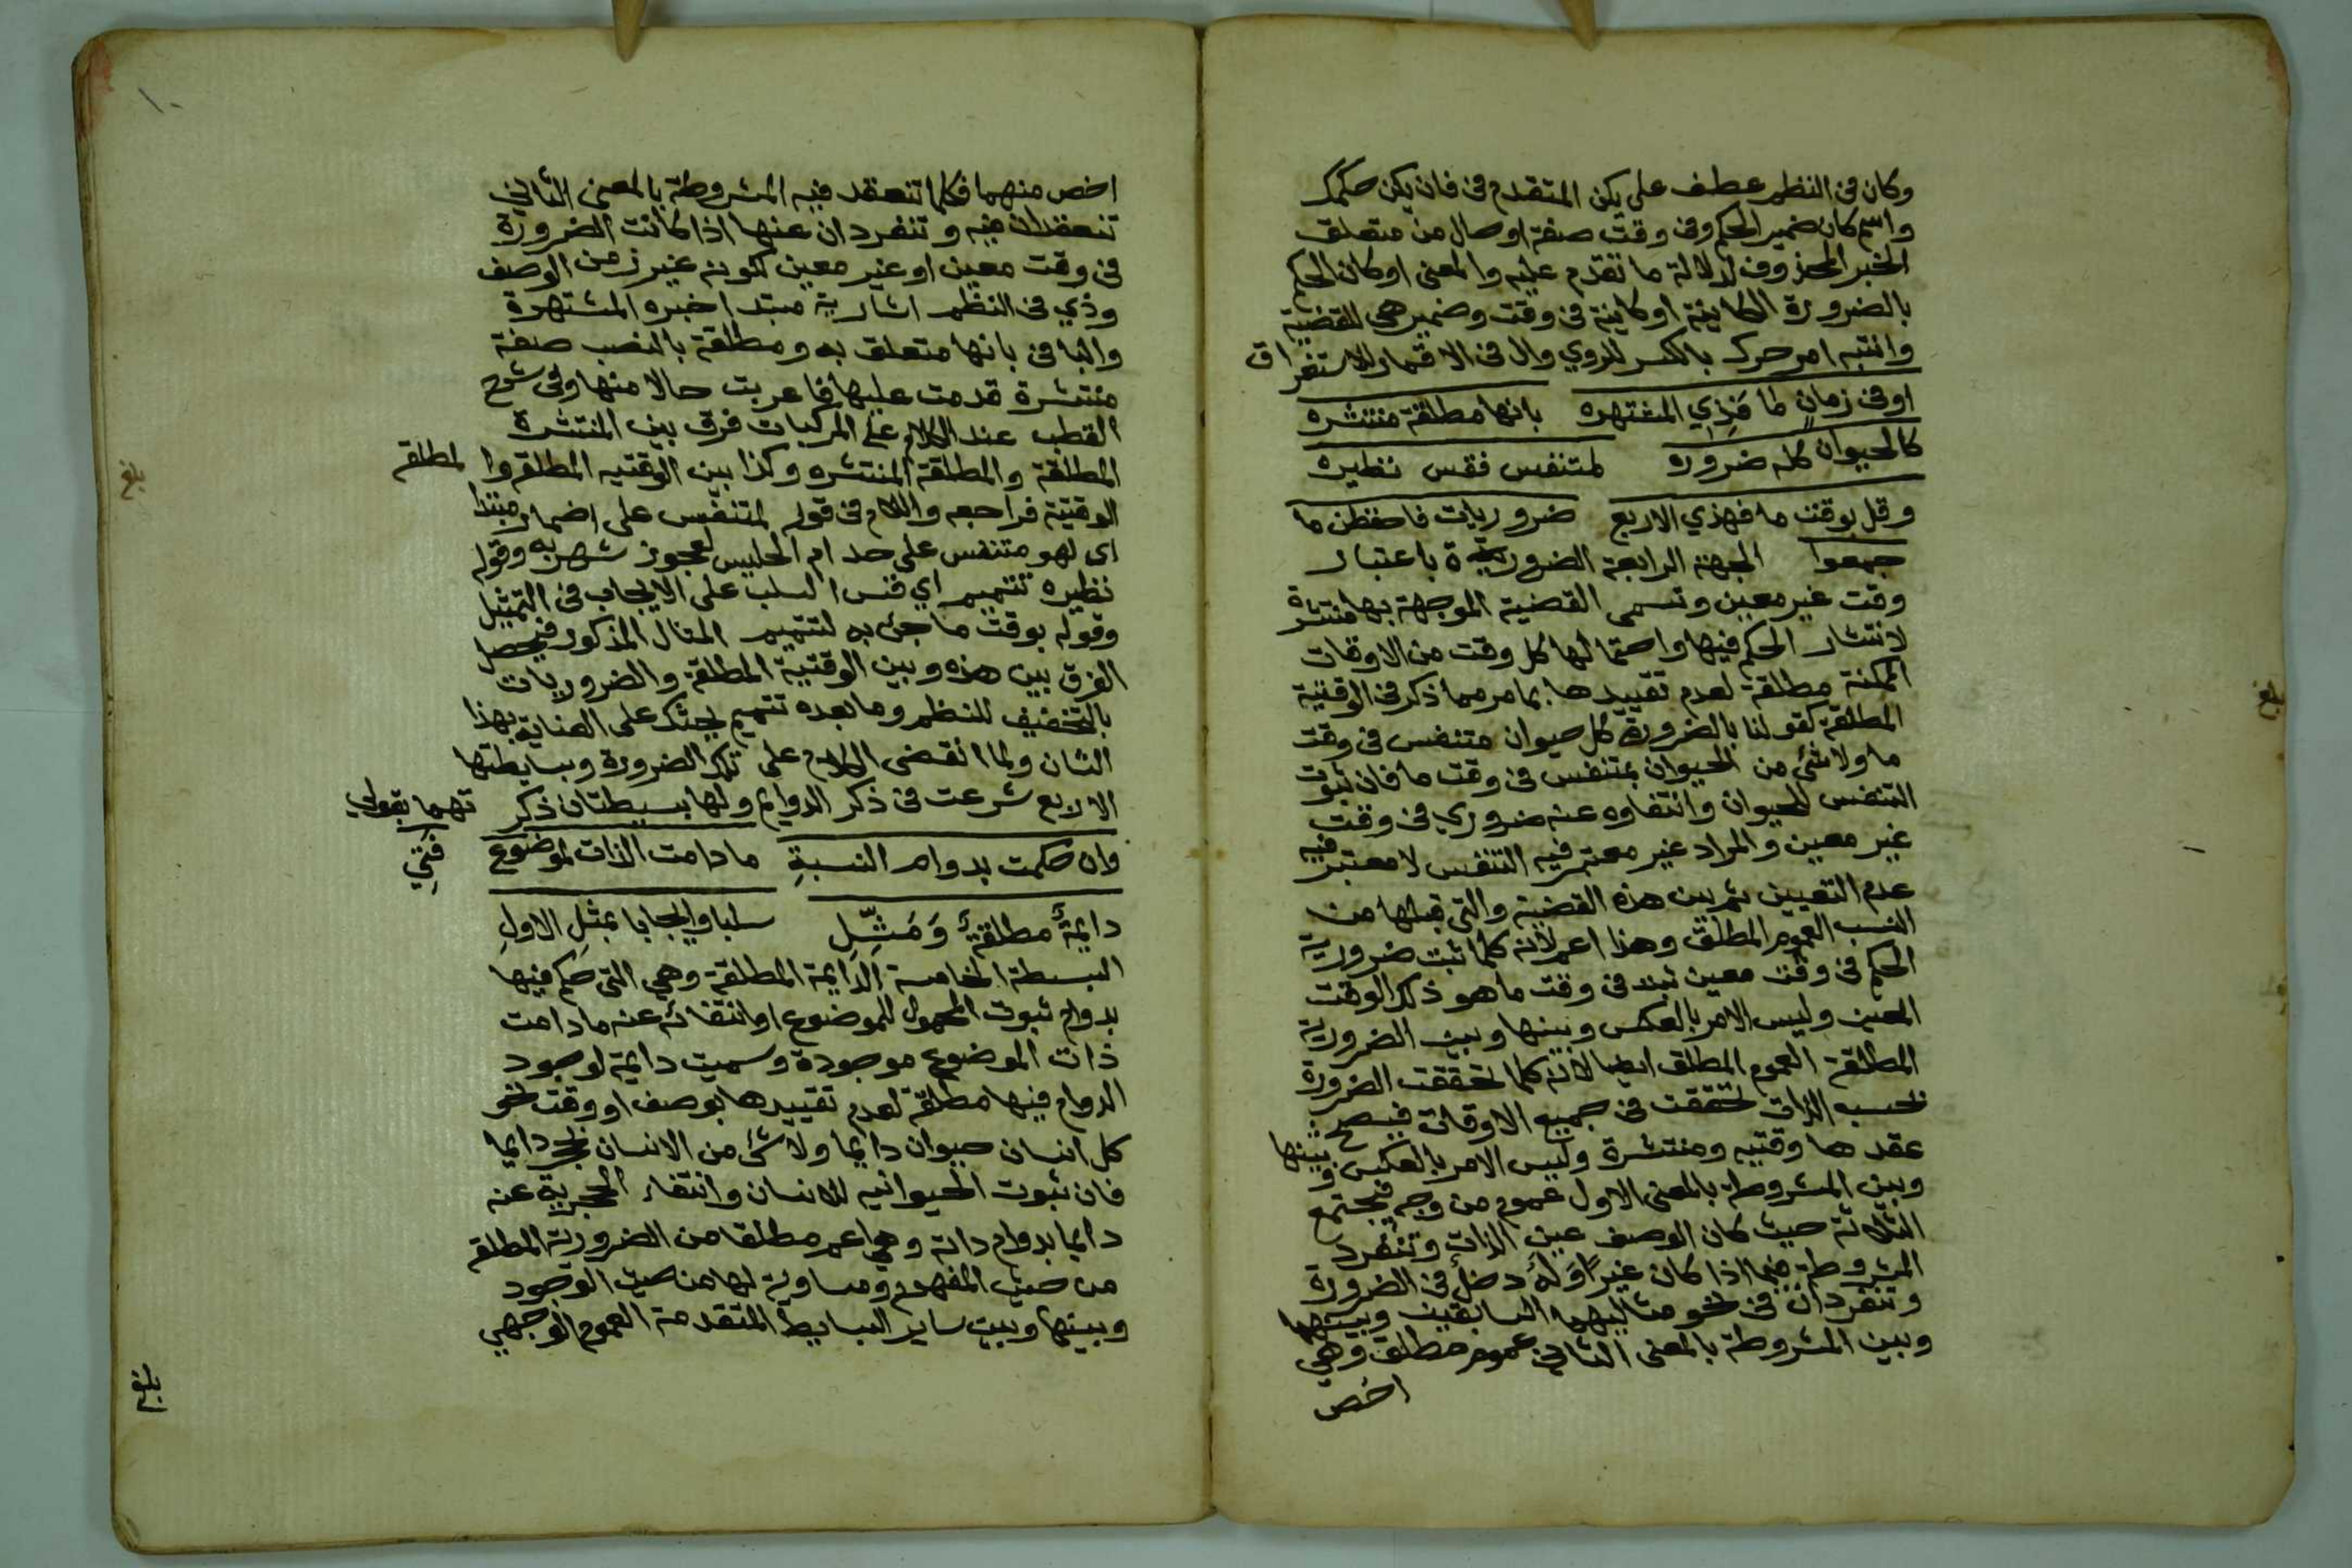 وكان فى النظم عطف على يكن المتقدم فى فان يكن حكمك
واسم كان ضمير الحكم وفى وقت صفة او حال من متعلق
الخبر المحذوف لدلالة ما تقدم عليه والمعنى او كان الحكم
بالضرورة الكاينة او كاينة فى وقت وضمير هى للقضية
وانتبه امر حرك بالكسر للروي وال فى الاقمار للاستغراق
او فى زمان ما فذي المشتهره بانها مطلقة منتشره
كالحيوان كله ضروره لمتنفس فقس نظيره
وقل بوقت ما فهذي الاربع ضروريات فاحفظن ما
جمعوا الجهة الرابعة الضرورة باعتبار
وقت غير معين وتسمى القضية الموجهة بها منتشرة
لانتشار الحكم فيها واحتمالها كل وقت من الاوقات
الممكنة مطلقة لعدم تقييدها بما مر مما ذكر فى الوقتية
المطلقة كقولنا بالضرورة كل حيوان متنفس فى وقت
ما ولا شئ من الحيوان بمتنفس فى وقت ما فان ثبوت
التنفس للحيوان وانتفاوه عنه ضروري فى وقت
غير معين والمراد غير معتبر فيه التنفس لا معتبر فيه
عدم التعيين ثم بين هذه القضية والتى قبلها من
النسب العموم المطلق وهذا اعم لانه كلما ثبت ضرورية
الحكم فى وقت معين ثبت فى وقت ما هو ذلك الوقت
المعين وليس الامر بالعكس وبينها وبين الضرورية
المطلقة العموم المطلق ايضا لانه كلما تحققت الضرورة
بحسب الذات تحققت فى جميع الاوقات فيصح
عقدها وقتيه ومنتشرة وليس الامر بالعكس وبينها
وبين المشروطة بالمعنى الاول عموم من وجه فيجتمع
الثلاثة حيث كان الوصف عين الذات وتنفرد
المشروطة فيما اذا كان غيرا وله دخل فى الضرورة
وتنفردان فى نحو مثاليهما السابقين وبينهما
وبين المشروطة بالمعنى الثانى عموم مطلق وهى
اخص
بلغ
بلغ
١٠
اخص منهما فكلما تنعقد فيه المشروطة بالمعنى الثاني
تنعقدان فيه وتنفردان عنها اذا كانت الضرورة
فى وقت معين او غير معين لكونه غير زمن الوصف
وذي فى النظم اشارية مبتدا خبره المشتهرة
والبا فى بانها متعلق به ومطلقة بالنصب صفة
منتشرة قدمت عليها فاعربت حالا منها وفى شرح
القطب عند الكلام على المركبات فرق بين المنتشرة
المطلقة والمطلقة المنتشره وكذا بين الوقتيه المطلقه والمطلقه
الوقتية فراجعه واللام فى قوله لمتنفس على اضمار مبتدا
اى لهو متنفس على حد ام الحليس لعجوز شهربه وقوله
نظيره تتميم اي قس السلب على الايجاب فى التمثيل
وقوله بوقت ما جئ به لتتميم المثال المذكور فيحصل
الفرق بين هذه وبين الوقتية المطلقة والضروريات
بالتخفيف للنظم وما بعده تتميم يحثك على العناية بهذا
الشان ولما انقضى الكلام على تلك الضرورة وبسايطها
الاربع شرعت فى ذكر الدوام ولها بسيطتان ذكرتهما بقولي
وان حكمت بدوام النسبةِ ما دامت الذات لموضوع فتِي
دايمةٌ مطلقةٌ وَمَثِّلِ سلبا وايجابا بمثلِ الاولِ
البسيطة الخامسة الدايمة المطلقة وهي التى حكم فيها
بدوام ثبوت المحمول للموضوع او انتفائه عنه ما دامت
ذات الموضوع موجودة وسميت دايمة لوجود
الدوام فيها مطلقة لعدم تقييدها بوصف او وقت نحو
كل انسان حيوان دايما ولا شئ من الانسان بحجر دايما
فان ثبوت الحيوانيه للانسان وانتفاء الحجرية عنه
دايما بدوام ذاته وهي اعم مطلقا من الضرورية المطلقه
من حيث المفهوم ومساوية لها من حيث الوجود
وبينها وبين ساير البسايط المتقدمة العموم الوجهي
بلغ